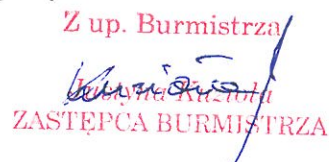 Z up. Burmistrza
Justyna
ZASTĘPCA BURMISTRZA